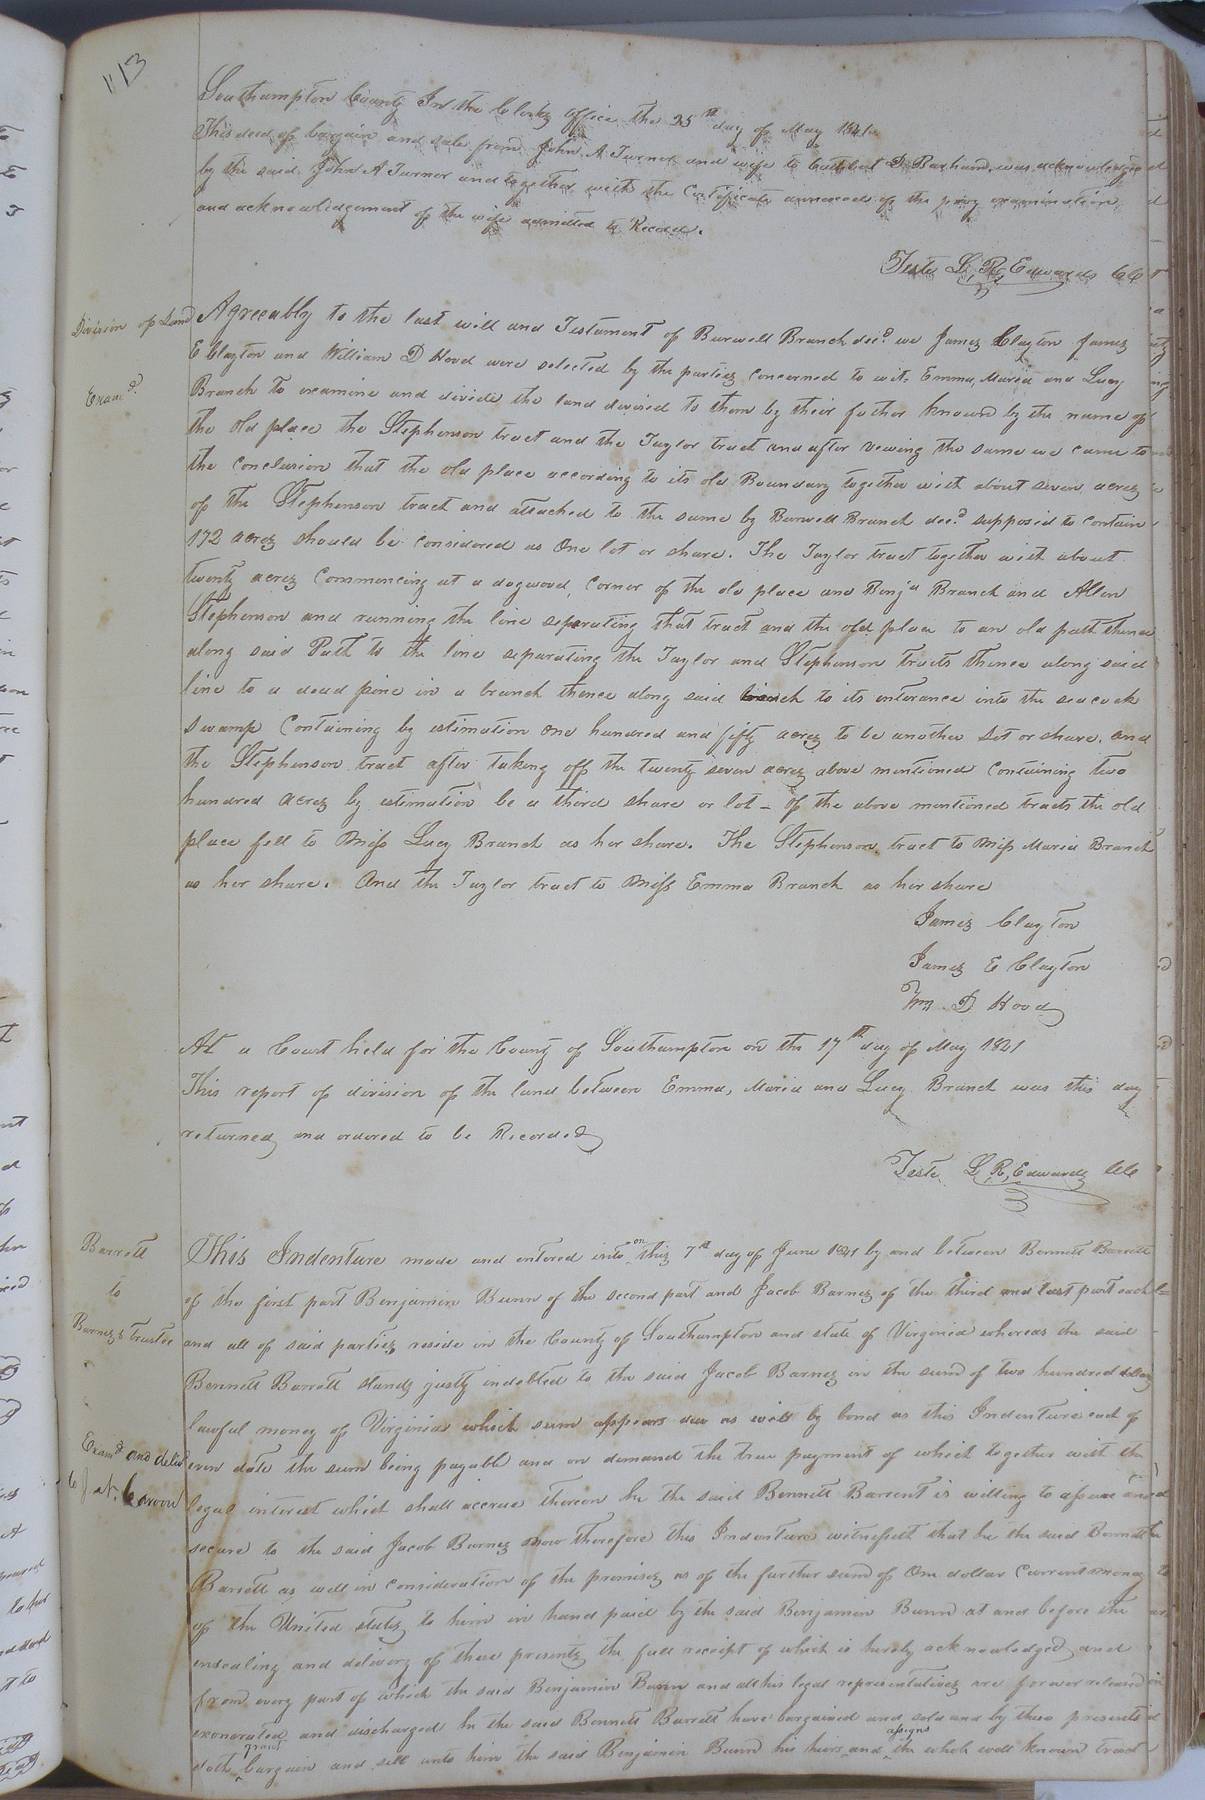 113
Southampton County In the Clerks office the 25th day of May 1841
This deed of bargain and sale from John A Turner and wife to Cuthbert D Barham was acknowledged
by the said John A Turner and together with the Certificate annexed of the privy examination
and acknowledgement of the wife admitted to Record.
Teste L. R. Edwards CC
Division of Land
Examd.
Agreeably to the last will and Testament of Burwell Branch decd. we James Clayton James
E Clayton and William D Hood were selected by the parties concerned to wit. Emma, Maria and Lucy
Branch to examine and divide the land devised to them by their father known by the name of
the old place the Stephenson tract and the Taylor tract and after viewing the same we came to
the conclusion that the old place according to its old Boundary together with about seven acres
of the Stephenson tract and attached to the same by Burwell Branch decd. supposed to contain
172 acres should be considered as One lot or share. The Taylor tract together with about
twenty acres Commencing at a dogwood, corner of the old place and Benja Branch and Allen
Stephenson and running the line seperating that tract and the old place to an old path thence
along said Path to the line separating the Taylor and Stephenson tracts thence along said
line to a dead pine in a branch thence along said branch to its enterance into the seacock
swamp Containing by estimation one hundred and fifty acres to be another Lot or share. and
the Stephenson tract after taking off the twenty seven acres above mentioned Containing two
hundred acres by estimation be a third share or lot - of the above mentioned tracts the old
place fell to Miss Lucy Branch as her share. The Stephenson tract to Miss Maria Branch
as her share. And the Taylor tract to Miss Emma Branch as her share
James Clayton
James E Clayton
Wm D Hood
At a Court held for the County of Southampton on the 17th day of May 1821
This report of division of the land between Emma, Maria and Lucy Branch was this day
returned and ordered to be Recorded
Teste L. R. Edwards CC
Barrett
to
Barnes's Trustee
Examd and delivd
to J at. Caroon
This Indenture made and entered into on this 7th day of June 1841 by and between Bennett Barrett
of the first part Benjamin Bunn of the second part and Jacob Barnes of the third and last part each
and all of said parties reside in the County of Southampton and state of Virginia whereas the said
Bennett Barrett stands justly indebted to the said Jacob Barnes in the sum of two hundred dollars
lawful money of Virginia which sum appears due as well by bond as this Indenture each of
even date the sum being payable and on demand the true payment of which together with the
legal interest which shall accrue thereon he the said Bennett Barrent is willing to assure and
secure to the said Jacob Barnes now therefore this Indenture witnesseth that he the said Bennett
Barrett as well in consideration of the premises as of the further sum of One dollar Current money
of the United states to him in hand paid by the said Benjamin Bunn at and before the
ensealing and delivery of these presents the full receipt of which is hereby acknowledged and
from every part of which the said Benjamin Bunn and all his legal representatives are forever released
exonerated and discharged he the said Bennett Barrett have bargained and sold and by these presents
doth grant bargain and sell unto him the said Benjamin Bunn his heirs and assigns the whole well known tract